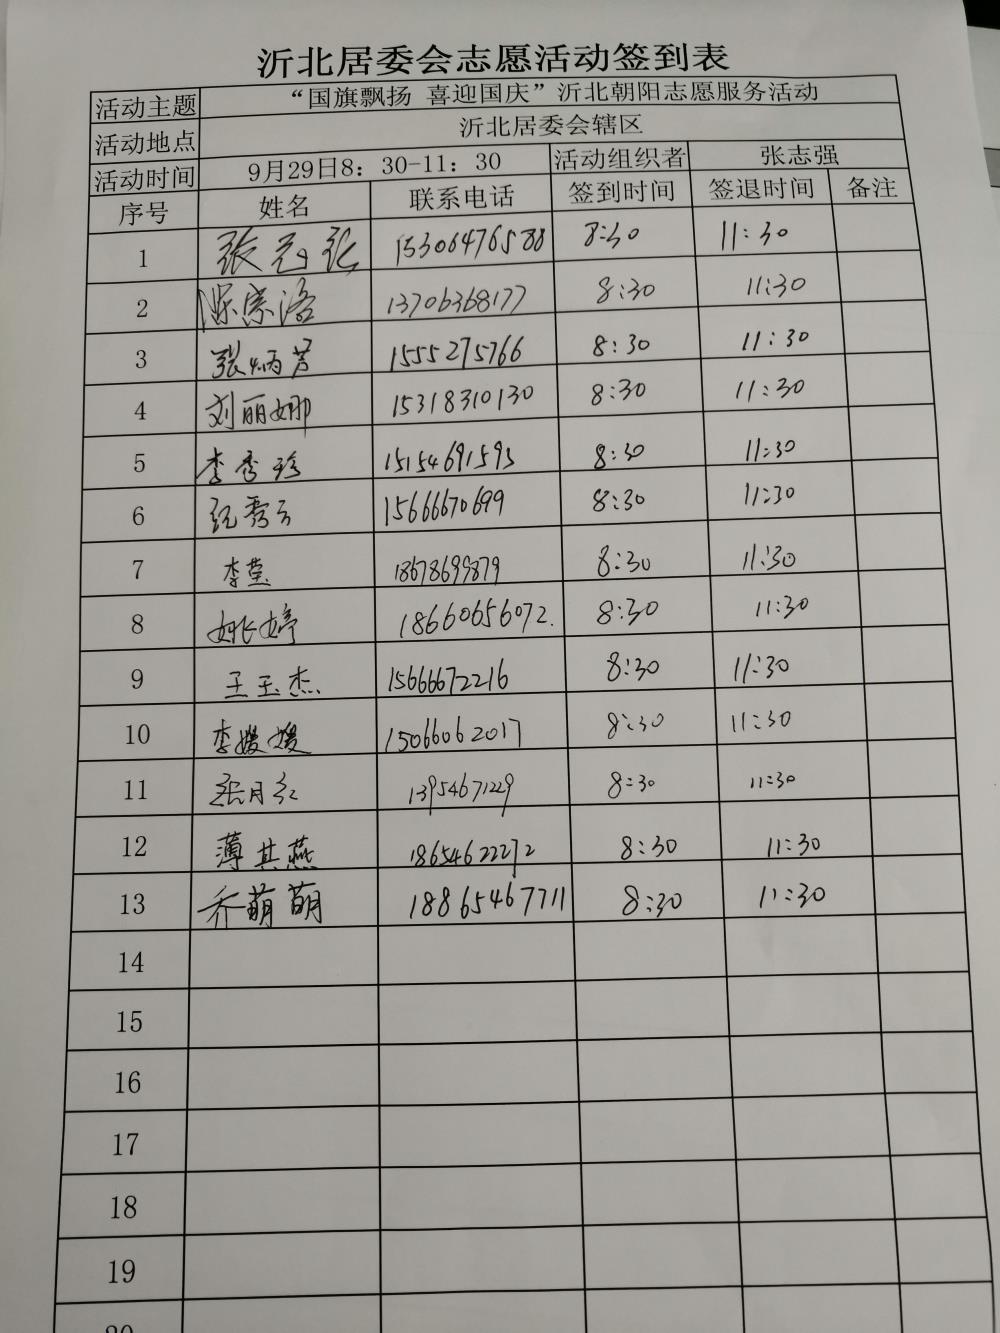 沂北居委会志愿活动签到表
活动主题 “国旗飘扬 喜迎国庆”沂北朝阳志愿服务活动
活动地点 沂北居委会辖区
活动时间 9月29日8：30-11：30 活动组织者 张志强
序号 姓名 联系电话 签到时间 签退时间 备注
1 张志强 15306476588 8:30 11:30
2 13706368177 8:30 11:30
3 张炳芳 1555275766 8:30 11:30
4 刘丽娜 15318310130 8:30 11:30
5 李秀珍 15154691595 8:30 11:30
6 纪秀云 15666670699 8:30 11:30
7 李莹 18678699879 8:30 11:30
8 姚婷 18660656072. 8:30 11:30
9 王玉杰 15666672216 8:30 11:30
10 李媛媛 15066062017 8:30 11:30
11 张月红 13954671229 8:30 11:30
12 薄其燕 18654622272 8:30 11:30
13 乔萌萌 18865467711 8:30 11:30
14
15
16
17
18
19